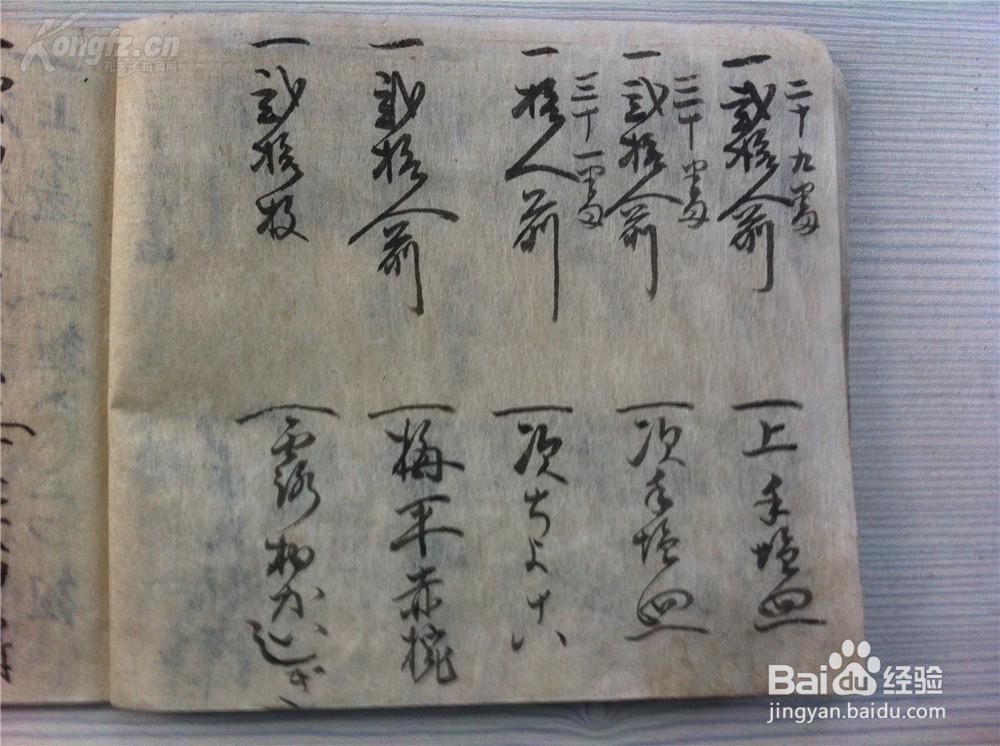 二十九番
一 弐拾人前
一 上手塩皿
三十番
一 弐拾人前
一 次手塩皿
三十一番
一 拾人前
一 次ちよく
一 弐拾人前
一 梅平赤椀
一 弐拾枚
Kongfz.cn
孔夫子拍卖网
Baidu 经验
jingyan.baidu.com